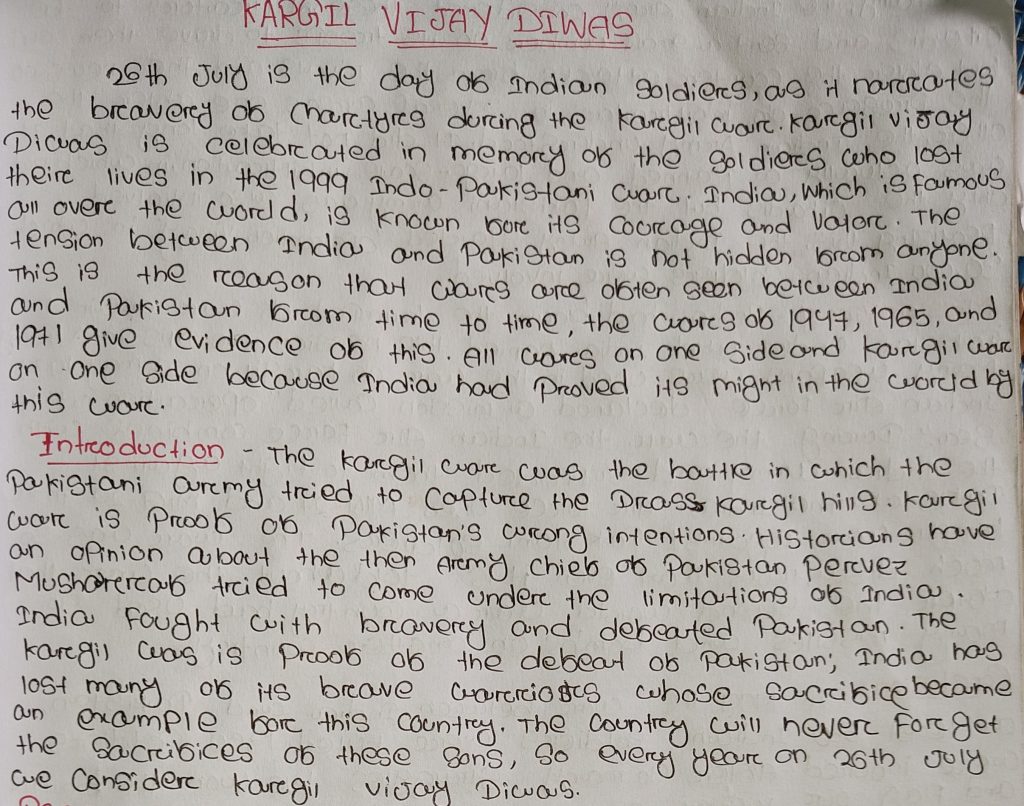 KARGIL VIJAY DIWAS
26th July is the day of Indian soldiers, as it narrates
the bravery of martyrs during the Kargil war. Kargil vijay
Diwas is celebrated in memory of the soldiers who lost
their lives in the 1999 Indo-Pakistani war. India, which is famous
all over the world, is known for its courage and valor. The
tension between India and Pakistan is not hidden from anyone.
This is the reason that wars are often seen between India
and Pakistan from time to time, the wars of 1947, 1965, and
1971 give evidence of this. All wars on one side and Kargil war
on one side because India had proved its might in the world by
this war.
Introduction - The Kargil war was the battle in which the
Pakistani army tried to capture the Drass Kargil hills. Kargil
war is proof of Pakistan's wrong intentions. Historians have
an opinion about the then Army chief of Pakistan Pervez
Musharraf tried to come under the limitations of India.
India fought with bravery and defeated Pakistan. The
Kargil was is proof of the defeat of Pakistan; India has
lost many of its brave warriors whose sacrifice became
an example for this country. The country will never forget
the sacrifices of these sons, so every year on 26th July
we consider Kargil vijay Diwas.